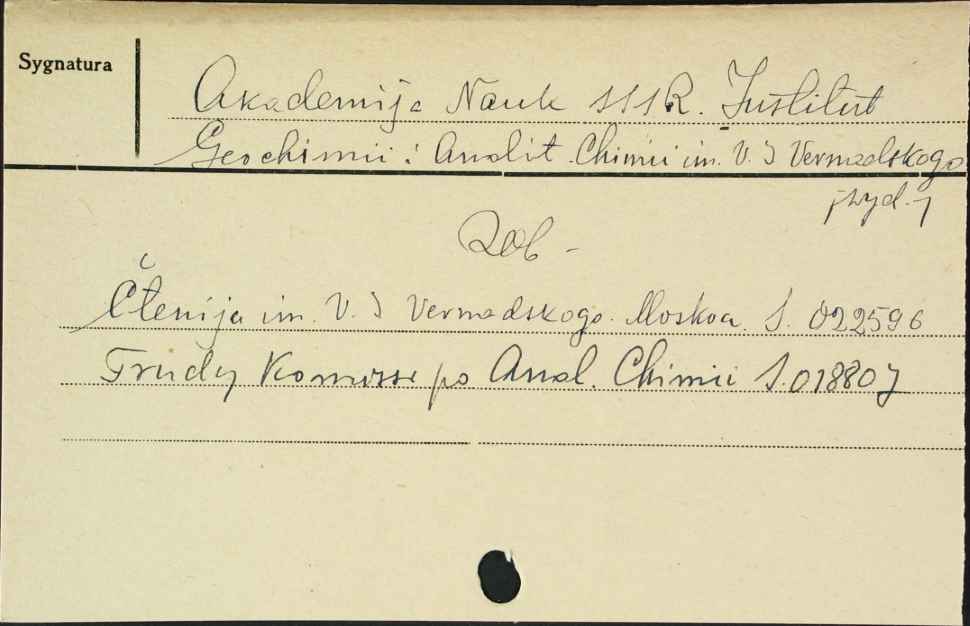 Sygnatura
Akademija Nauk SSSR. Institut
Geochimii i Analit. Chimii im. V. I Vernadskogo
[wyd.]
Zob -
Čtenija im. V. I Vernadskogo. Moskva. S. 022596
Trudy Komissi po Anal. Chimii S.018807